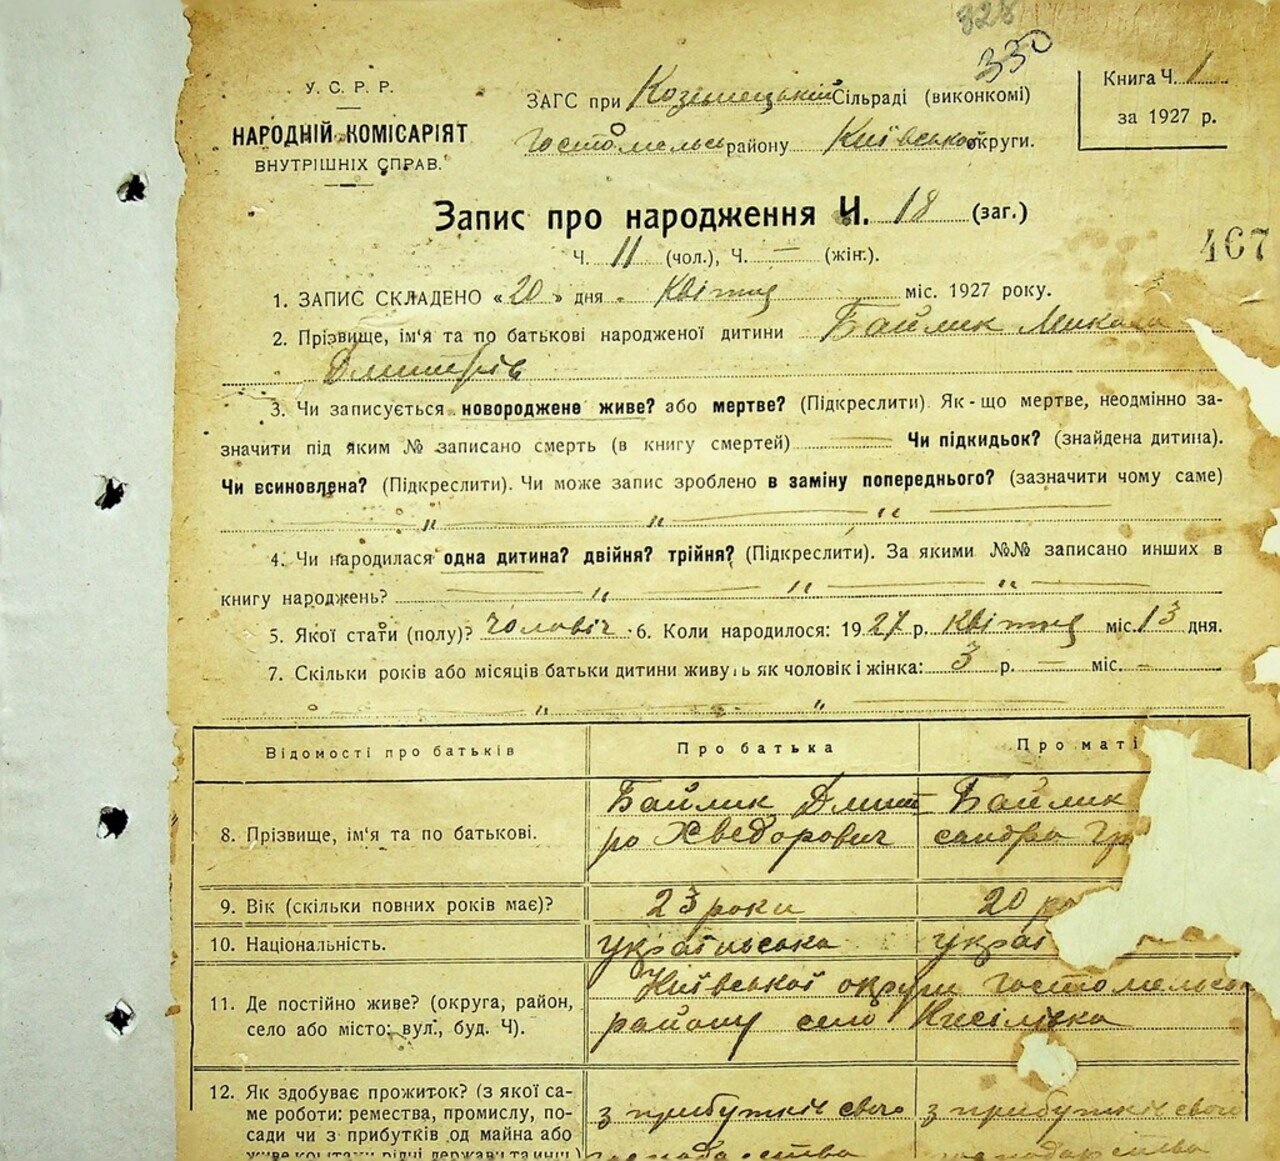 328
330
У. С. Р. Р.
НАРОДНІЙ КОМІСАРІЯТ
ВНУТРІШНІХ СПРАВ.
ЗАГС при Козинецькій Сільраді (виконкомі)
Гостомельсь району Київської округи.
Книга Ч. 1
за 1927 р.
Запис про народження Ч. 18 (заг.)
Ч. 11 (чол.), Ч. — (жін.).
467
1. ЗАПИС СКЛАДЕНО «20» дня Квітня міс. 1927 року.
2. Прізвище, ім'я та по батькові народженої дитини Байлик Микола
Дмитрів
3. Чи записується новороджене живе? або мертве? (Підкреслити). Як-що мертве, неодмінно за-
значити під яким № записано смерть (в книгу смертей) — Чи підкидьок? (знайдена дитина).
Чи всиновлена? (Підкреслити). Чи може запис зроблено в заміну попереднього? (зазначити чому саме)
— „ — „ — „ —
4. Чи народилася одна дитина? двійня? трійня? (Підкреслити). За якими №№ записано инших в
книгу народжень? — „ — „ — „ —
5. Якої стати (полу)? чоловіч. 6. Коли народилося: 1927 р. Квітня міс. 13 дня.
7. Скільки років або місяців батьки дитини живуть як чоловік і жінка: 3 р. — міс. —
— „ — „ —
Відомості про батьків Про батька Про маті
8. Прізвище, ім'я та по батькові. Байлик Дмит Байлик
ро Хведорович сандра Гр
9. Вік (скільки повних років має)? 23 роки 20 ро
10. Національність. українська украї
11. Де постійно живе? (округа, район, село або місто: вул., буд. Ч). Київської округи Гостомельсь
району село Кисілівка
12. Як здобуває прожиток? (з якої са-
ме роботи: ремества, промислу, по- з прибутків свого з прибутків свого
сади чи з прибутків од майна або господарства господарства
живе коштами рідні держави та инш.)